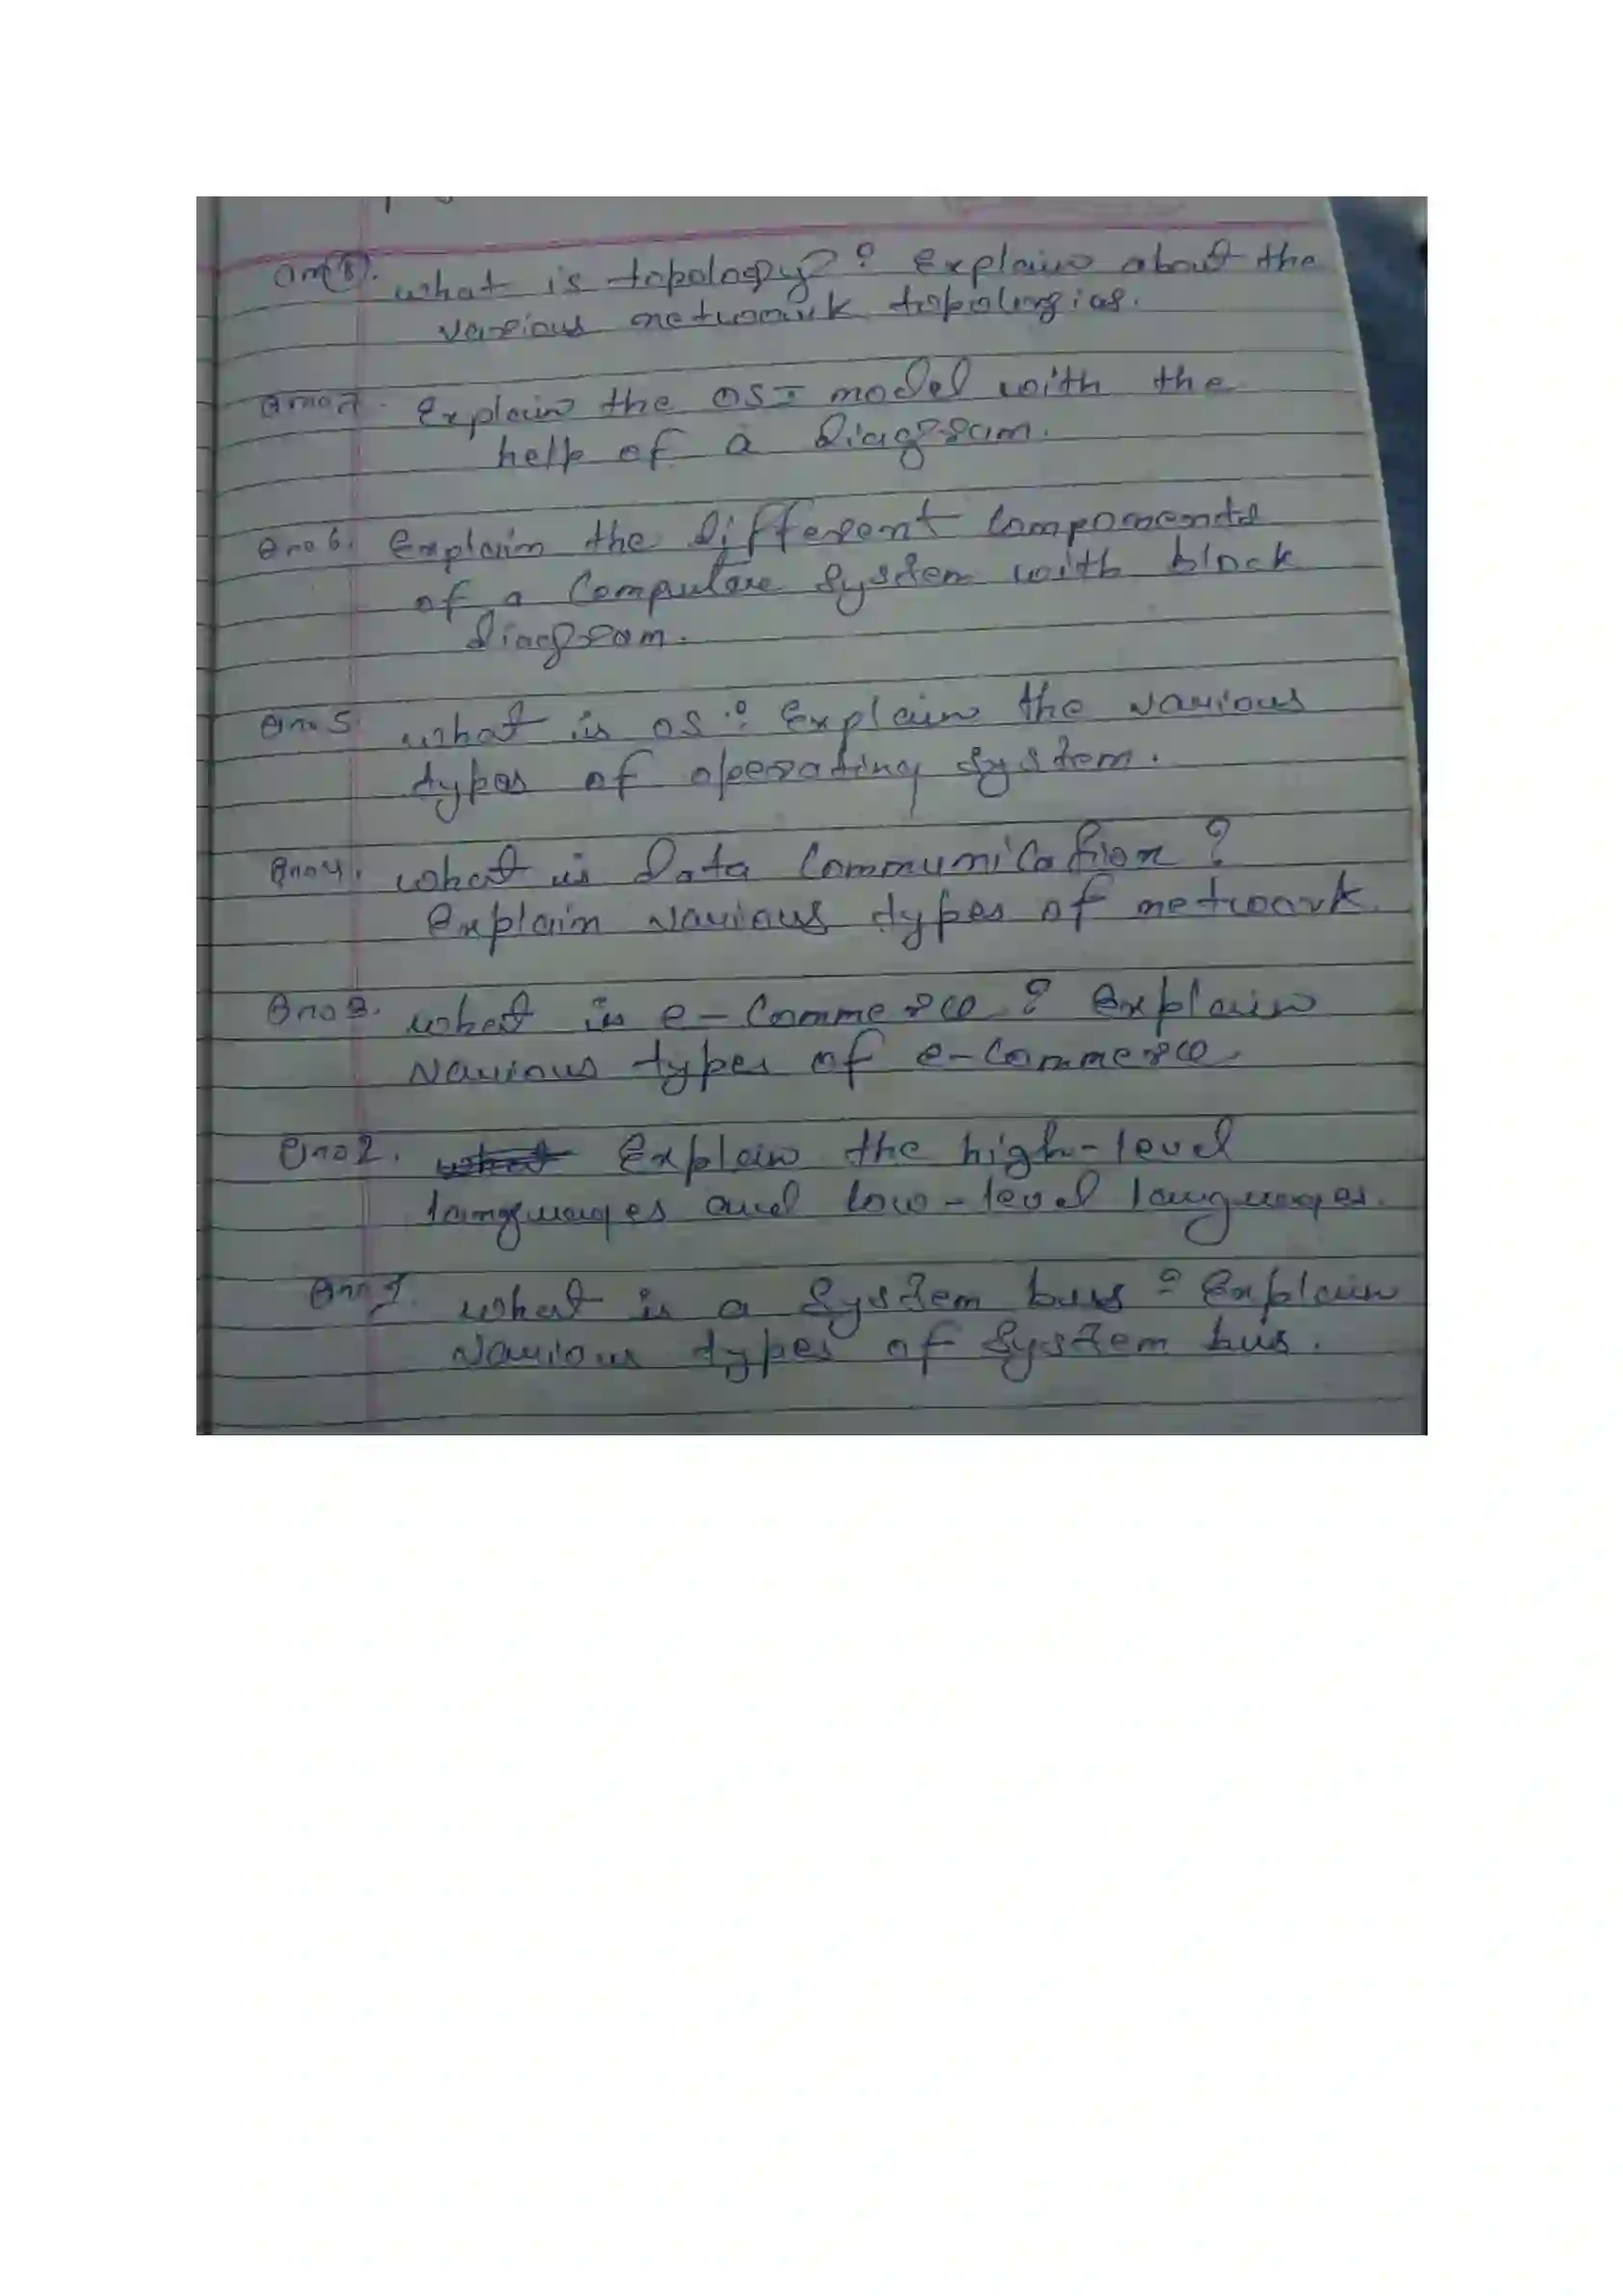 Qno(8). What is topology? Explain about the
various network topologies.
Qno 7. Explain the OSI model with the
help of a diagram.
Qno 6. Explain the different components
of a Computer System with block
diagram.
Qno 5. What is OS? Explain the various
types of operating System.
Qno 4. What is Data Communication?
Explain various types of network
Qno 3. What is e-Commerce? Explain
various types of e-Commerce.
Qno 2. Explain the high-level
languages and low-level languages.
Qno 1. What is a System bus? Explain
various types of System bus.